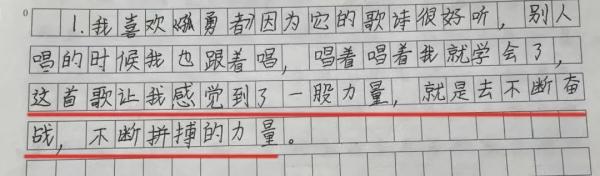 1.我喜欢《孤勇者》因为它的歌诗很好听，别人
唱的时候我也跟着唱，唱着唱着我就学会了，
这首歌让我感觉到了一股力量，就是去不断奋
战，不断拼搏的力量。